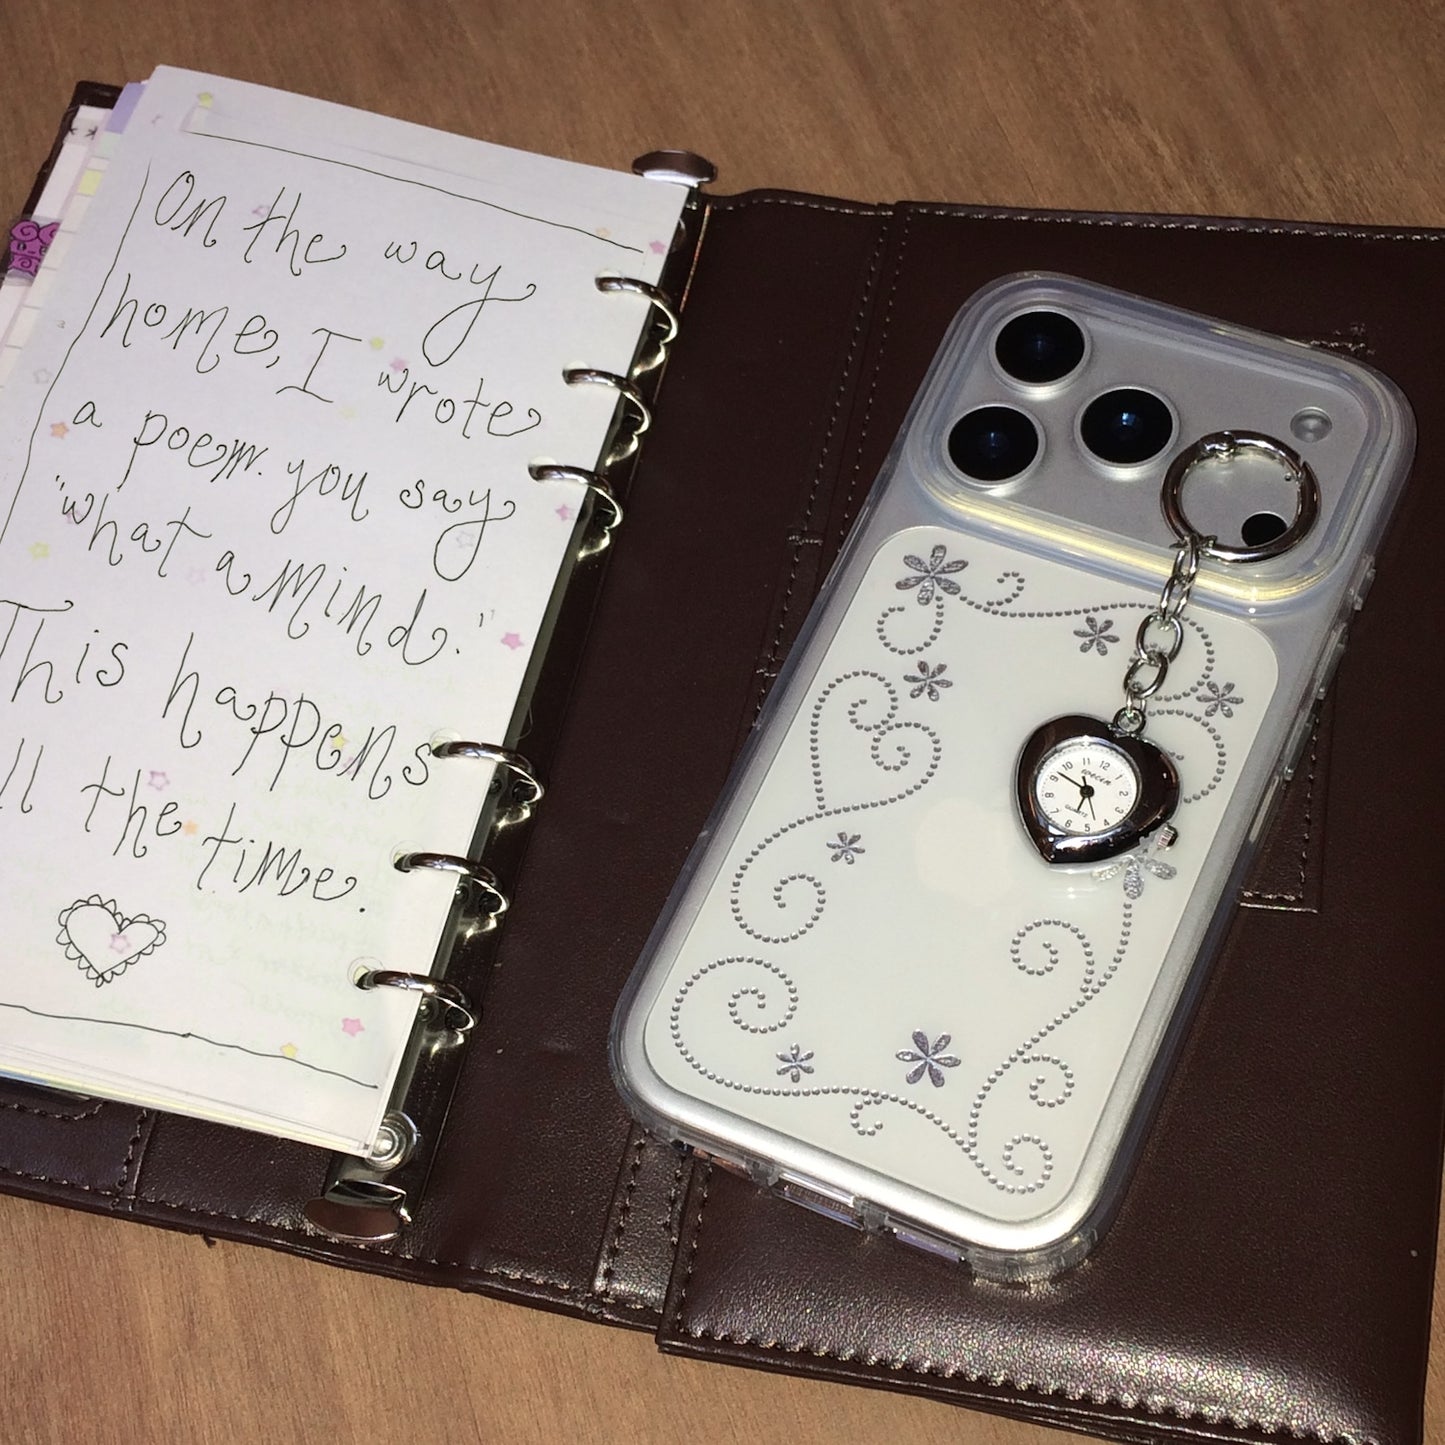 On the way
home, I wrote
a poem. you say
"what a mind."
This happens
ll the time.
10 11 12
9
2
8
7 6 5 4
QUARTZ